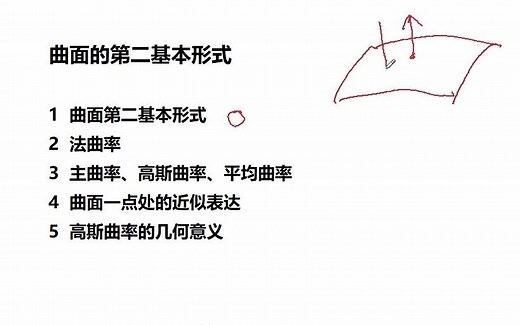 曲面的第二基本形式
1 曲面第二基本形式
2 法曲率
3 主曲率、高斯曲率、平均曲率
4 曲面一点处的近似表达
5 高斯曲率的几何意义